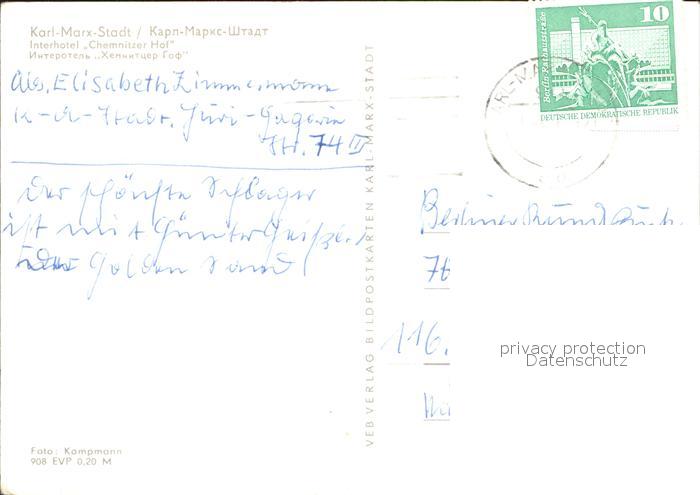 Karl-Marx-Stadt / Карл-Маркс-Штадт
Interhotel „Chemnitzer Hof"
Интеротель „Хемнитцер Гоф"
Abs. Elisabeth Zimmermann
K-M-Stadt. Juri-Gagarin
Str. 74 III
Der schönste Schlager
ist mit Günter Geißler
Golden Sand
Foto: Kampmann
908 EVP 0,20 M
VEB VERLAG BILDPOSTKARTEN KARL-MARX-STADT
10
Berlin-Rathausstraße
DEUTSCHE DEMOKRATISCHE REPUBLIK
Berliner Rundfunk
116.
privacy protection
Datenschutz